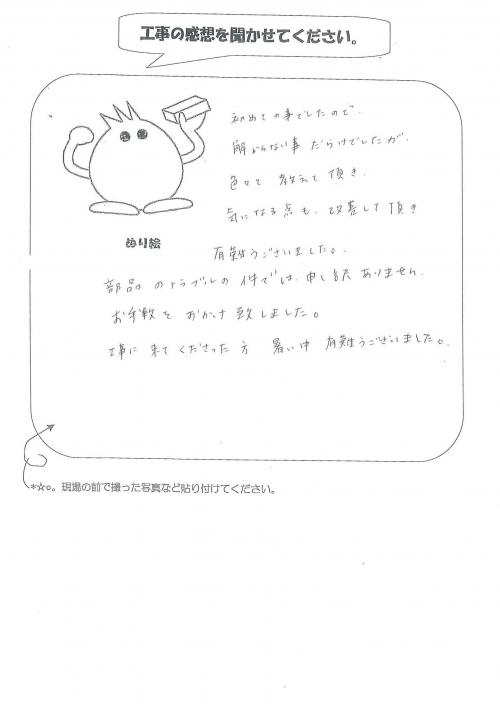 工事の感想を聞かせてください。
初めての事でしたので、
解からない事だらけでしたが、
色々と教えて頂き、
気になる点も、改善して頂き
有難うございました。
ぬり絵
部品のトラブルの件では、申し訳ありません。
お手数をおかけ致しました。
工事に来てくださった方 暑い中 有難うございました。
*☆○。現場の前で撮った写真など貼り付けてください。